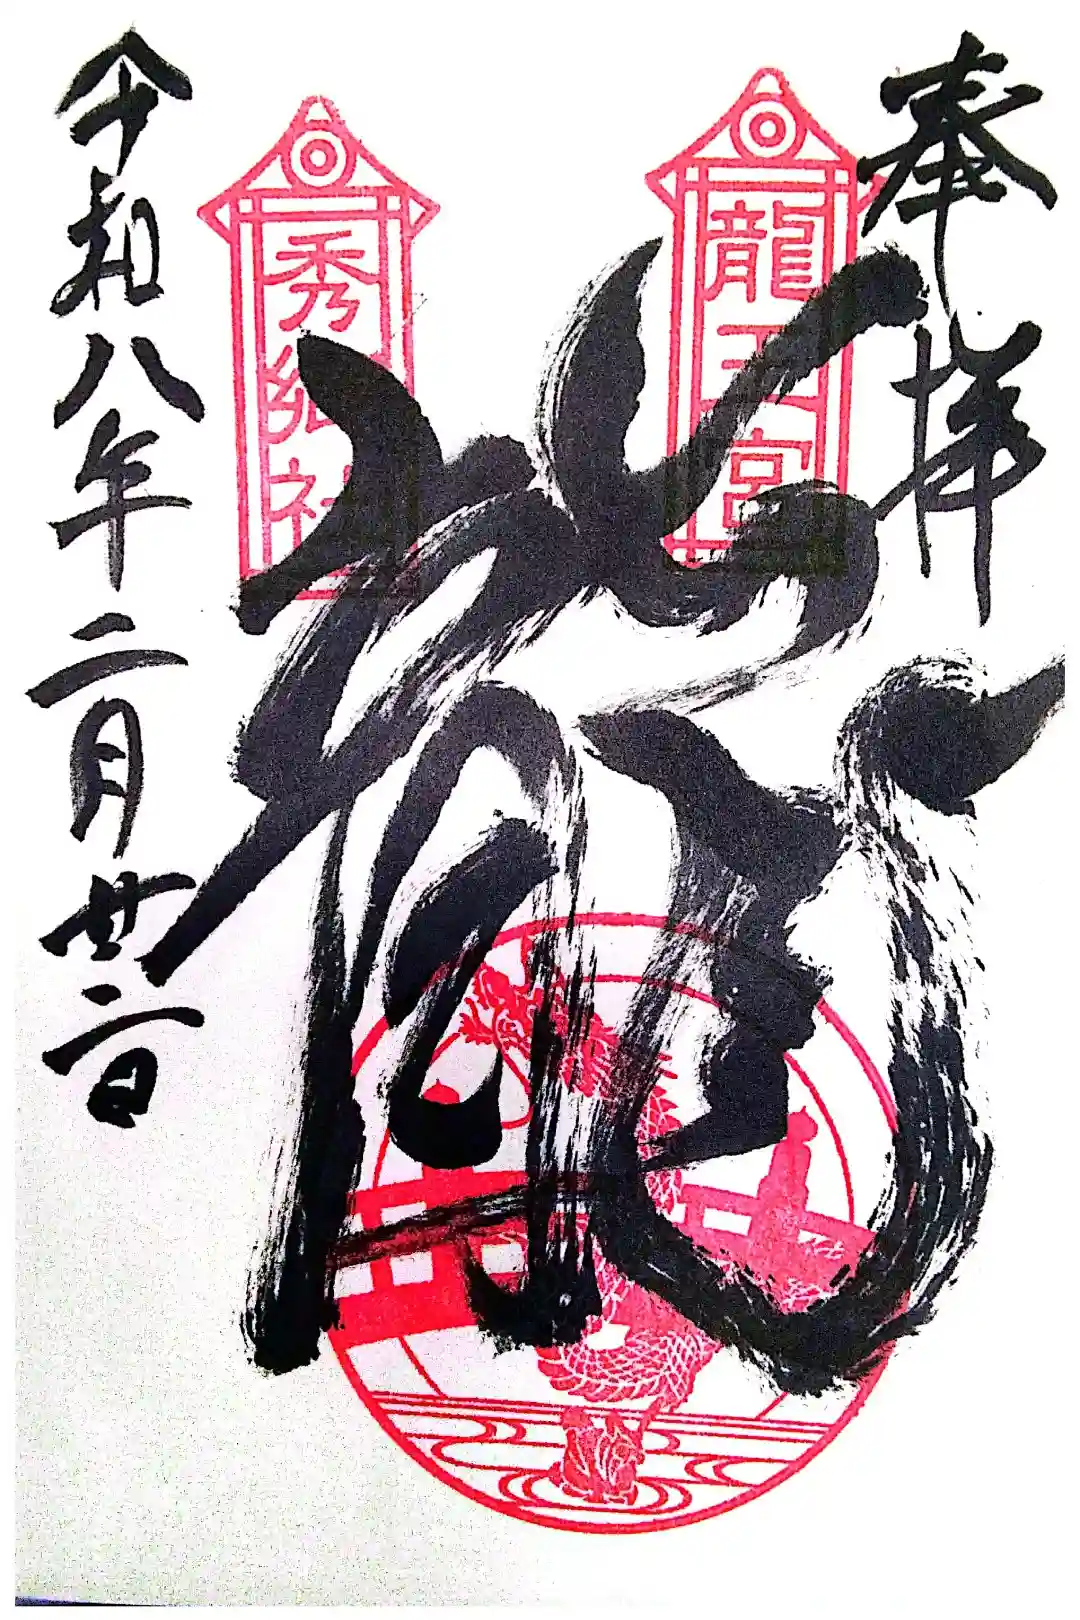 奉拝
龍王宮
秀郷社
令和八年二月廿二日